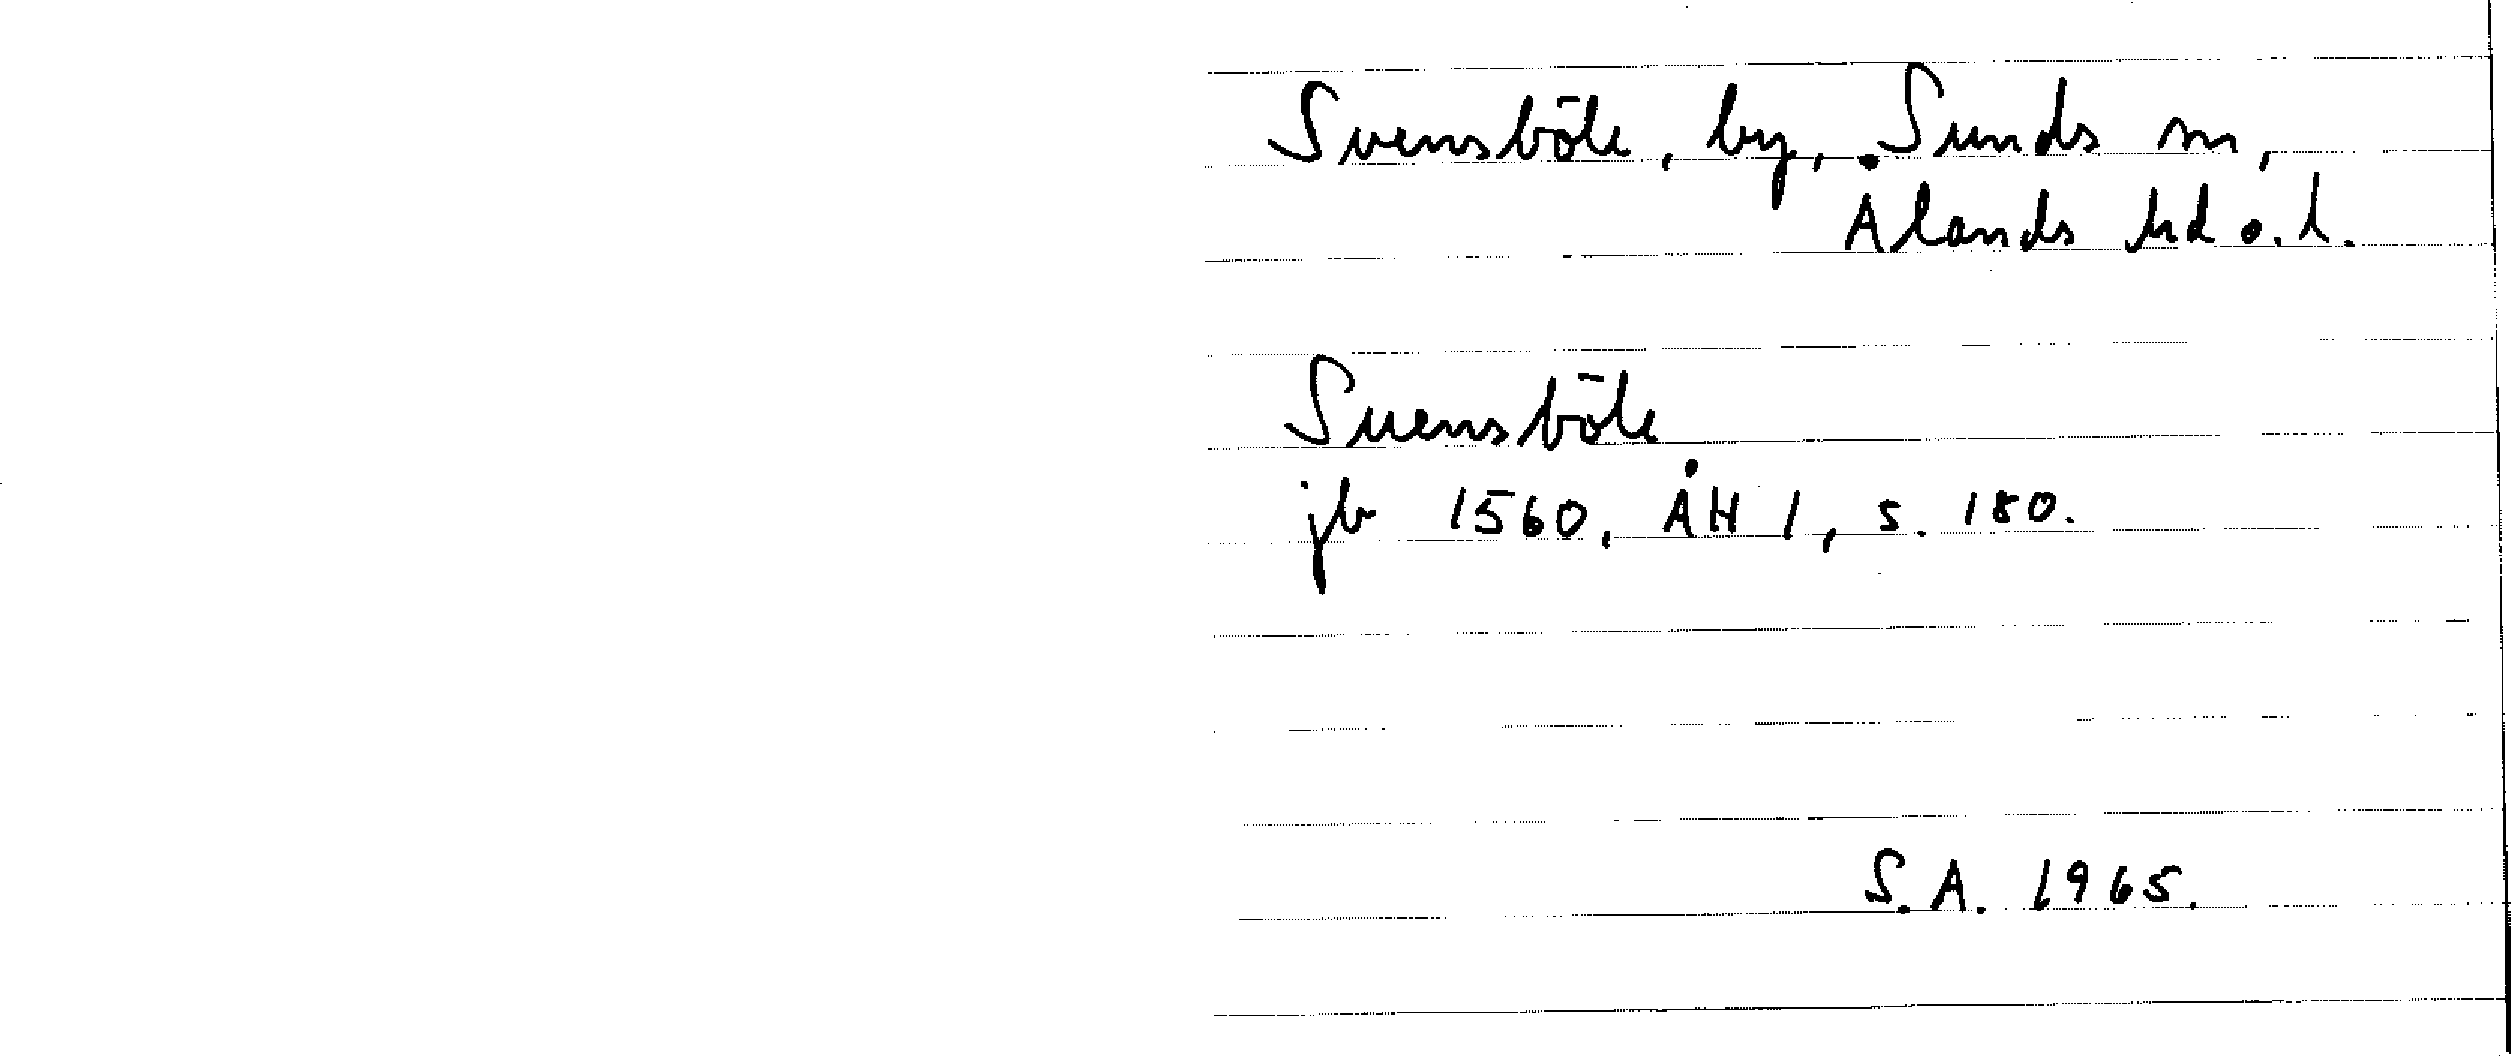 Svensböle, by, Sunds sn,
Ålands hd o. l.
Suensböle
jb 1560, ÅH 1, s. 180.
S.A. 1965.